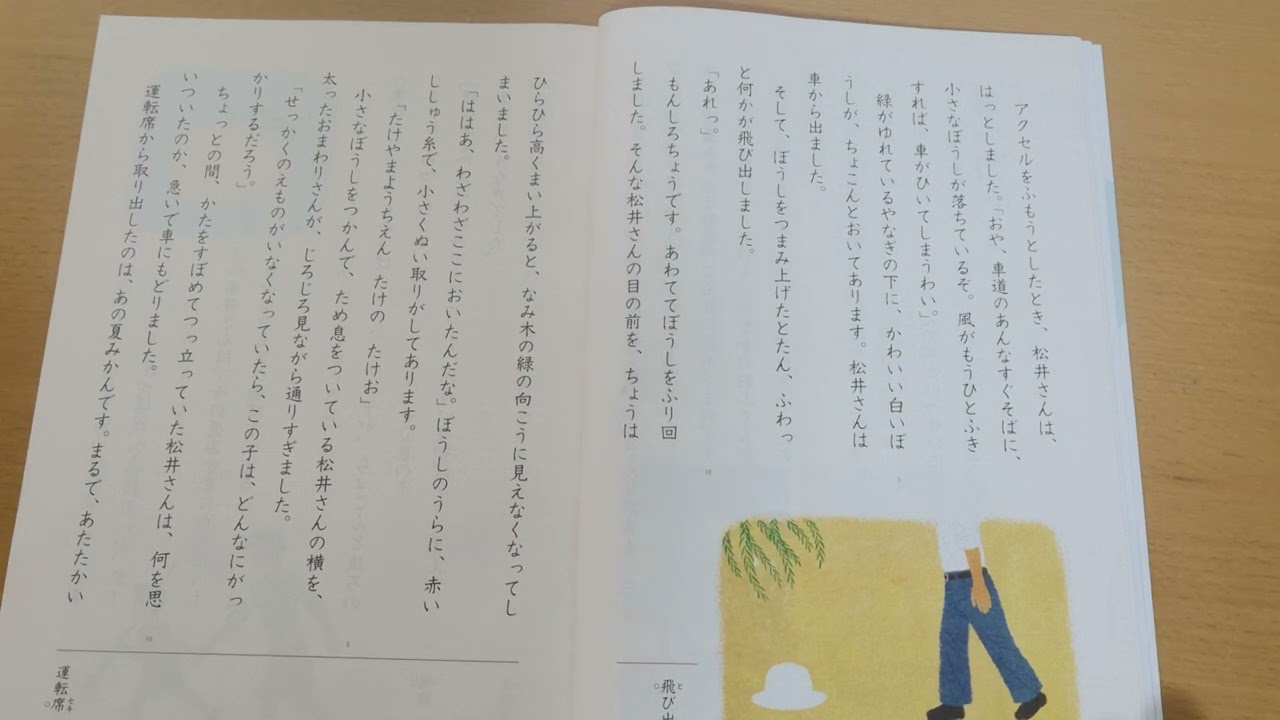 アクセルをふもうとしたとき、松井さんは、
はっとしました。「おや、車道のあんなすぐそばに、
小さなぼうしが落ちているぞ。風がもうひとふき
すれば、車がひいてしまうわい」。
緑がゆれているやなぎの下に、かわいい白いぼ
うしが、ちょこんとおいてあります。松井さんは
車から出ました。
そして、ぼうしをつまみ上げたとたん、ふわっ
と何かが飛び出しました。
「あれっ。」
もんしろちょうです。あわててぼうしをふり回
しました。そんな松井さんの目の前を、ちょうは
5
10
飛び出
と
ひらひら高くまい上がると、なみ木の緑の向こうに見えなくなってし
まいました。
「ははあ、わざわざここにおいたんだな」。ぼうしのうらに、赤い
ししゅう糸で、小さくぬい取りがしてあります。
「たけやまようちえん　たけの　たけお」
小さなぼうしをつかんで、ため息をついている松井さんの横を、
太ったおまわりさんが、じろじろ見ながら通りすぎました。
「せっかくのえものがいなくなっていたら、この子は、どんなにがっ
かりするだろう。」
ちょっとの間、かたをすぼめてつっ立っていた松井さんは、何を思
いついたのか、急いで車にもどりました。
運転席から取り出したのは、あの夏みかんです。まるで、あたたかい
5
10
運転席。
セキ